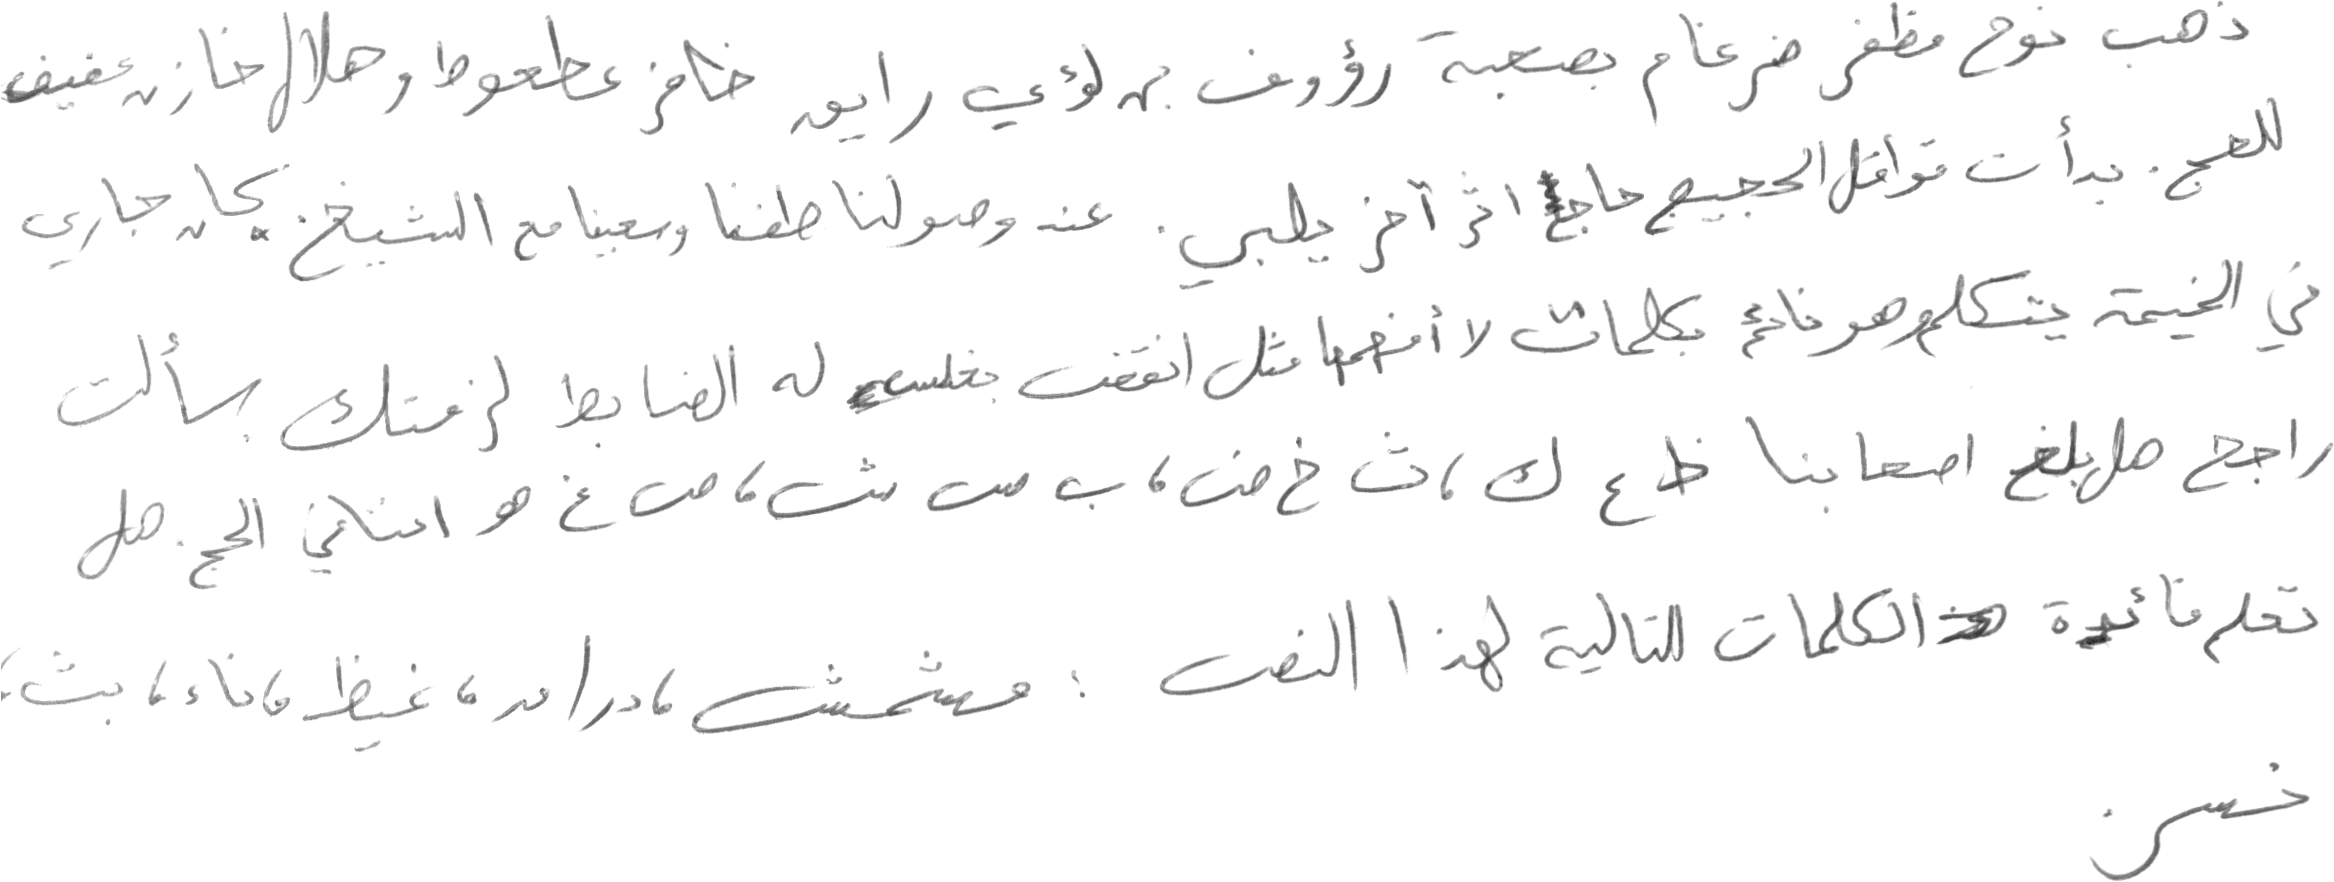 ذهب نوح مظفر ضرغام بصحبة رؤوف بن لؤي راين خافز عطعوط وهلال خازن عفيف
للحج. بدأت قوافل الحجيج حاجا اثر آخر يلبي. عند وصولنا طفنا وسعينا مع الشيخ. كان جاري
في الخيمة يتكلم وهو نائم بكلمات لا أفهمها مثل انقضت بغلس له الضابط لزمتك. سألت
راجح هل بلغ اصحابنا ظ ع ك، ث خ ض، ب س ش، ص غ هو اثنا في الحج. هل
تعلم فائدة الكلمات التالية لهذا النص: مشمش، دران، غيظ، فاء، بث،
خس.